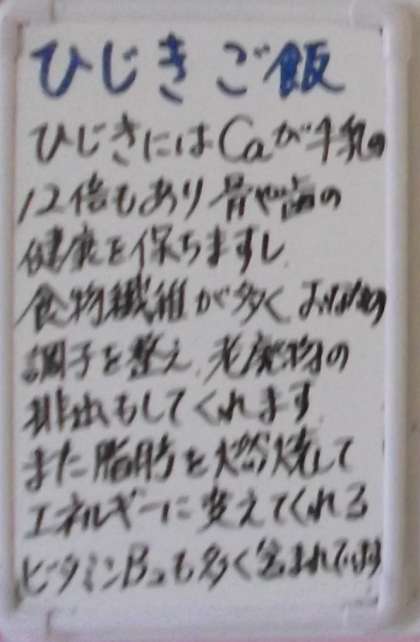 ひじきご飯
ひじきにはCaが牛乳の
12倍もあり骨や歯の
健康を保ちますし
食物繊維が多くおなかの
調子を整え、老廃物の
排出もしてくれます
また脂肪を燃焼して
エネルギーに変えてくれる
ビタミンB₂も多く含まれています